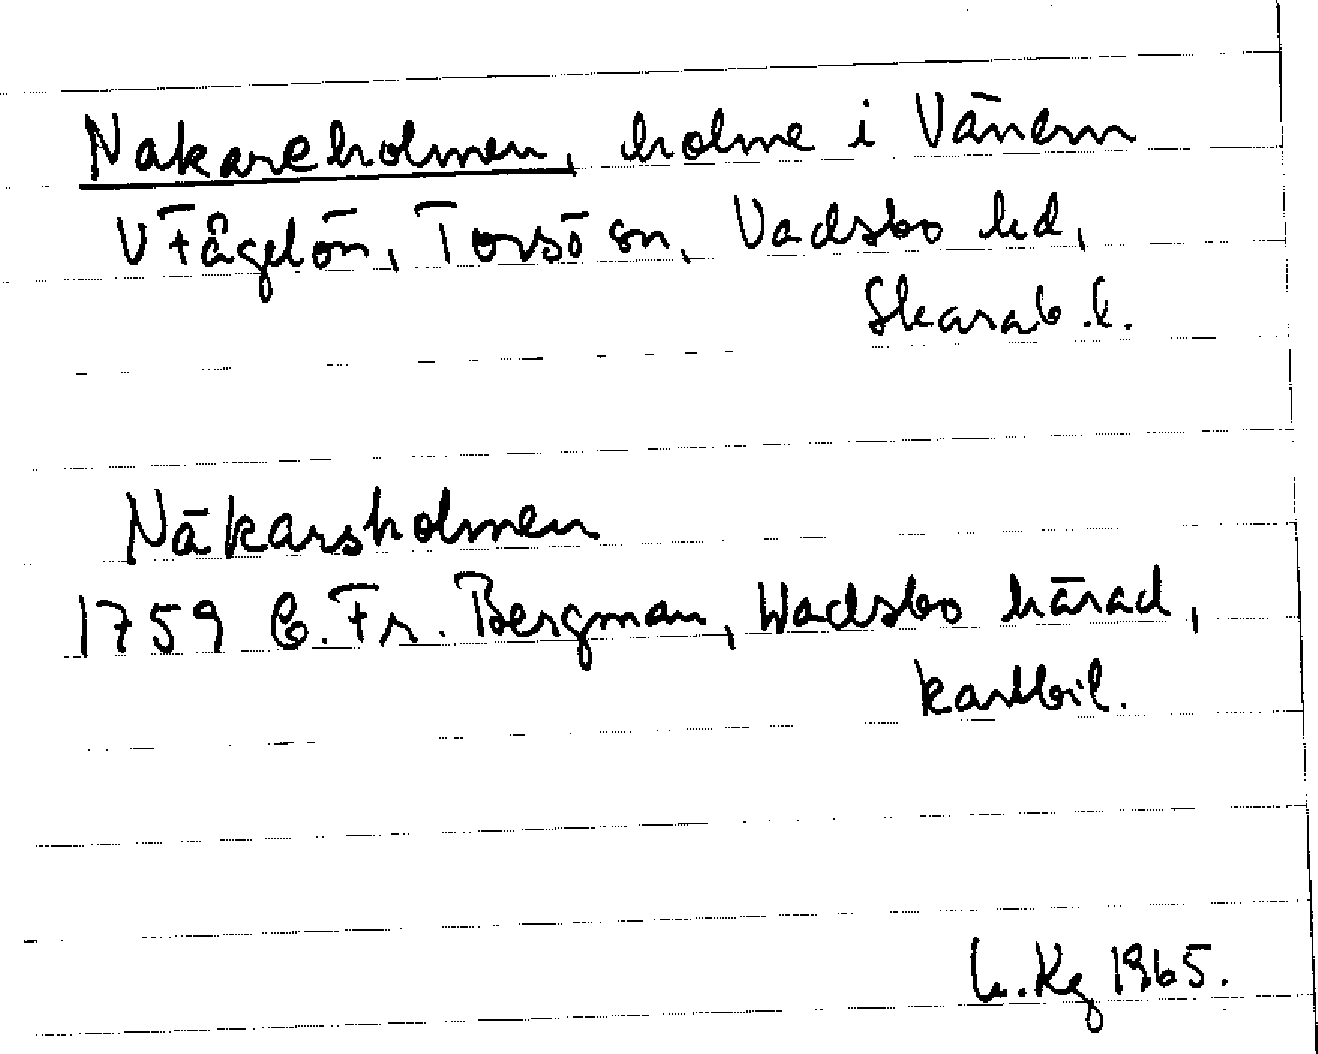 Nakareholmen, holme i Vänern
V Fågelön, Torsö sn, Vadsbo hd,
Skarab. l.
Näkarsholmen
1759 C. Fr. Bergman, Wadsbo härad,
kartbil.
Kg 1965.